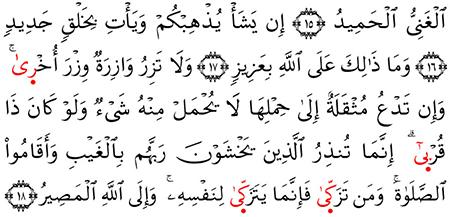 ٱلْغَنِىُّ ٱلْحَمِيدُ ﴿١٥﴾ إِن يَشَأْ يُذْهِبْكُمْ وَيَأْتِ بِخَلْقٍ جَدِيدٍ
﴿١٦﴾ وَمَا ذَٰلِكَ عَلَى ٱللَّهِ بِعَزِيزٍ ﴿١٧﴾ وَلَا تَزِرُ وَازِرَةٌ وِزْرَ أُخْرِىٰ ۚ
وَإِن تَدْعُ مُثْقَلَةٌ إِلَىٰ حِمْلِهَا لَا يُحْمَلْ مِنْهُ شَىْءٌ وَلَوْ كَانَ ذَا
قُرْبِىٰٓ ۗ إِنَّمَا تُنذِرُ ٱلَّذِينَ يَخْشَوْنَ رَبَّهُم بِٱلْغَيْبِ وَأَقَامُوا۟
ٱلصَّلَوٰةَ ۚ وَمَن تَزَكِّىٰ فَإِنَّمَا يَتَزَكِّىٰ لِنَفْسِهِۦ ۚ وَإِلَى ٱللَّهِ ٱلْمَصِيرُ ﴿١٨﴾